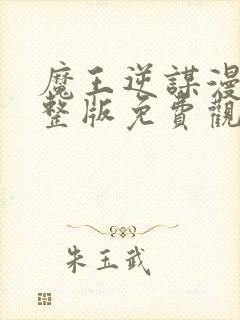 魔王逆謀漫
整版免費觀
朱玉武